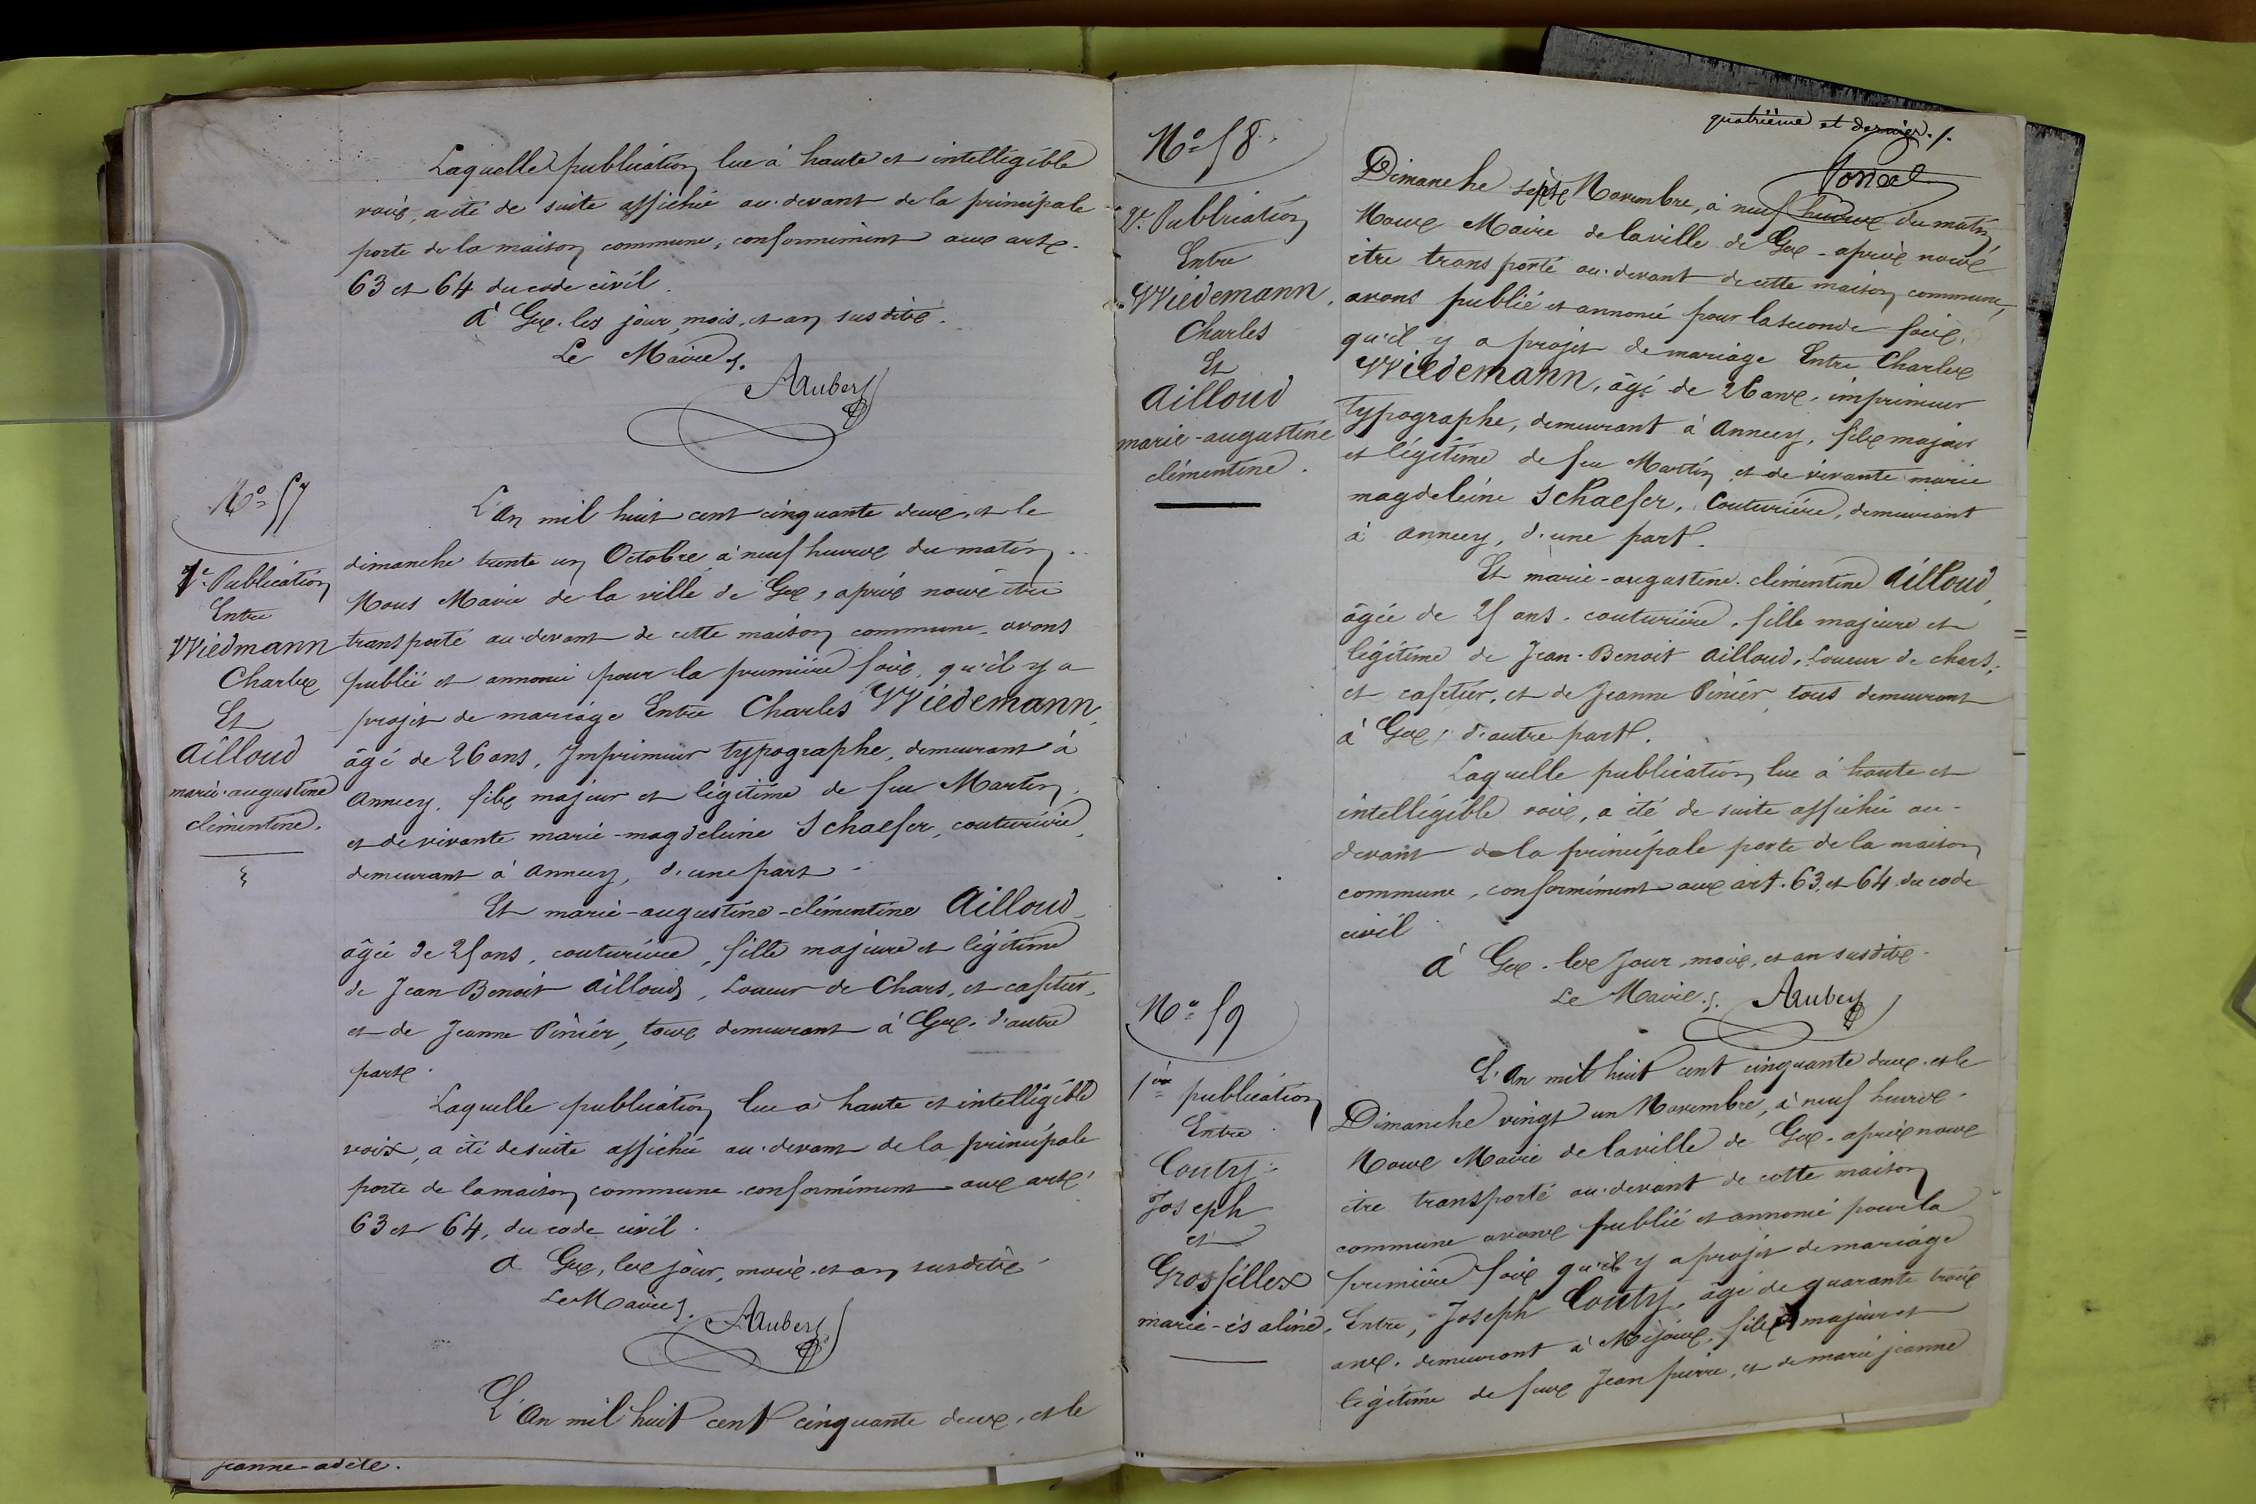 Laquelle publication lue à haute et intelligible
voix, a été de suite affichée au-devant de la principale
porte de la maison commune, conformément aux arts.
63 et 64 du code civil.
A Gex. les jour, mois, et an susdits.
Le Maire
AAubery
No. 57
1e. Publication
Entre
Wiedmann
Charles
Et
Ailloud
marie-augustine
clémentine.
L'An mil huit cent cinquante deux, et le
dimanche trente un Octobre à neuf heures du matin.
Nous Maire de la ville de Gex, après nous être
transporté au-devant de cette maison commune, avons
publié et annoncé pour la première fois, qu'il y a
projet de mariage Entre Charles Wiedemann,
âgé de 26 ans, Imprimeur typographe, demeurant à
Annecy, fils majeur et légitime de feu Martin,
et de vivante marie-magdeleine Schaefer, couturière,
demeurant à Annecy, d'une part.
Et marie-augustine-clémentine Ailloud
âgée de 25 ans, couturière, fille majeure et légitime
de Jean Benoit Ailloud, Loueur de Chars, et caftier,
et de Jeanne Pinier, tous demeurant à Gex, d'autre
part.
Laquelle publication lue à haute et intelligible
voix, a été de suite affichée au-devant de la principale
porte de la maison commune conformément aux arts.
63 et 64, du code civil.
A Gex, les jour, mois et an susdits.
Le Maire
AAubery
L'An mil huit cent cinquante deux, et le
jeanne-adèle.
quatrième et dernier./.
No. 58.
2e. Publication
Entre
Wiedemann,
Charles
Et
Ailloud
marie-augustine
clémentine.
Dimanche sept Novembre, à neuf heures du matin,
Nous Maire de la ville de Gex, après nous
être transporté au-devant de cette maison commune,
avons publié et annoncé pour la seconde fois,
qu'il y a projet de mariage Entre Charles
Wiedemann, âgé de 26 ans, imprimeur
typographe, demeurant à Annecy, fils majeur
et légitime de feu Martin, et de vivante marie
magdeleine Schaefer, Couturière, demeurant
à Annecy, d'une part.
Et marie-augustine-clémentine Ailloud,
âgée de 25 ans. couturière, fille majeure et
légitime de Jean-Benoit Ailloud, Loueur de chars,
et caftier, et de Jeanne Pinier, tous demeurant
à Gex, d'autre part.
Laquelle publication lue à haute et
intelligible voix, a été de suite affichée au-
devant de la principale porte de la maison
commune, conformément aux art. 63, et 64 du code
civil
A Gex. les Jour, mois, et an susdits.
Le Maire. AAubery
No. 59
1ère publication
Entre
Couty
Joseph
et
Grosfillex
marie-isaline.
L'An mil huit cent cinquante deux. et le
Dimanche vingt un Novembre, à neuf heures.
Nous Maire de la ville de Gex. après nous
être transporté au-devant de cette maison
commune avons publié et annoncé pour la
première fois qu'il y a projet de mariage
Entre, Joseph Couty, âgé de quarante trois
ans. demeurant à Mijoux, fils majeur et
légitime de feux Jean pierre, et de marie jeanne